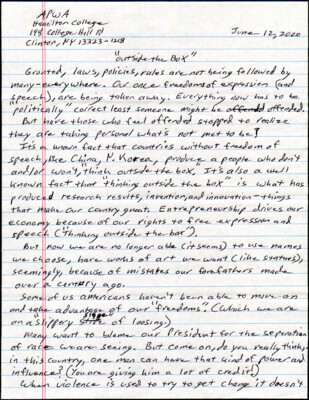 APWA
Hamilton College
198 College Hill Rd
Clinton, NY 13323-1218
June 12, 2020
"Outside the Box"
Granted, laws, policies, rules are not being followed by
many-everywhere. Our once freedoms of expression (and
speech), are being taken away. Everything now has to be
"politically" correct least someone might be offended.
But have those who feel offended stopped to realize
they are taking personal what's not met to be?
It's a known fact that countries without freedom of
speech, like China, N. Korea, produce a people who don't
and/or won't, think outside the box. It's also a well
known fact that "thinking outside the box" is what has
produced research results, invention, and innovation-things
that make our country great. Entrepreneurship drives our
economy because of our rights to free expression and
speech ("thinking outside the box").
But now we are no longer able (it seems) to use names
we choose, have works of art we want (like statues),
seemingly, because of mistakes our forefathers made
over a century ago.
Some of us americans haven't been able to move on
and take advantage of our "freedoms". (Which we are
on a slippery slope of loosing).
Many want to blame our President for the seperation
of race we are seeing. But come on, do you really think,
in this country, one man can have that kind of power and
influence? (You are giving him a lot of credit!)
When violence is used to try to get change it doesn't